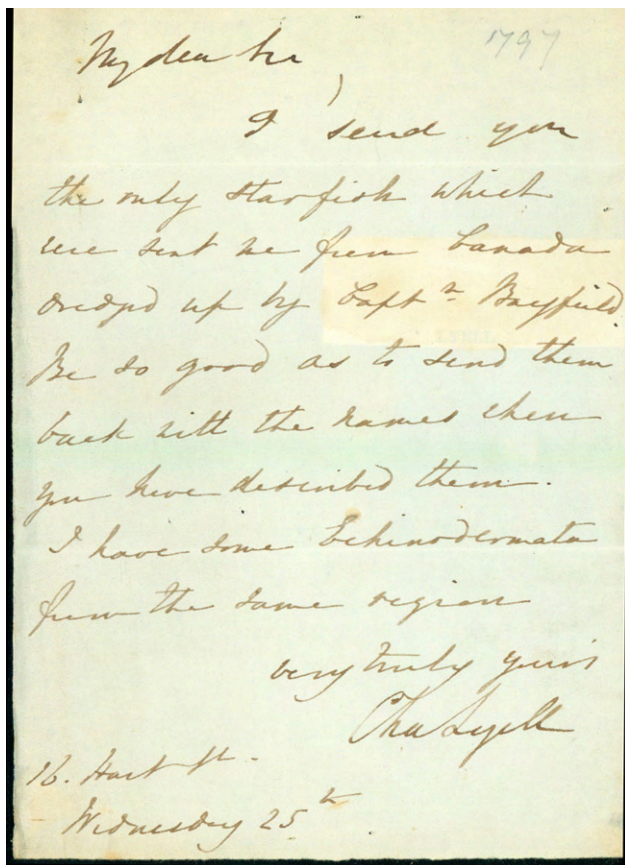 1797
My dear Sir
I send you
the only starfish which
were sent me from Canada
dredgd up by Captn Bayfield
Be so good as to send them
back with the names when
you have described them.
I have some Echinodermata
from the same region
very truly yours
Cha Lyell
16. Hart St.
Wednesday 25th